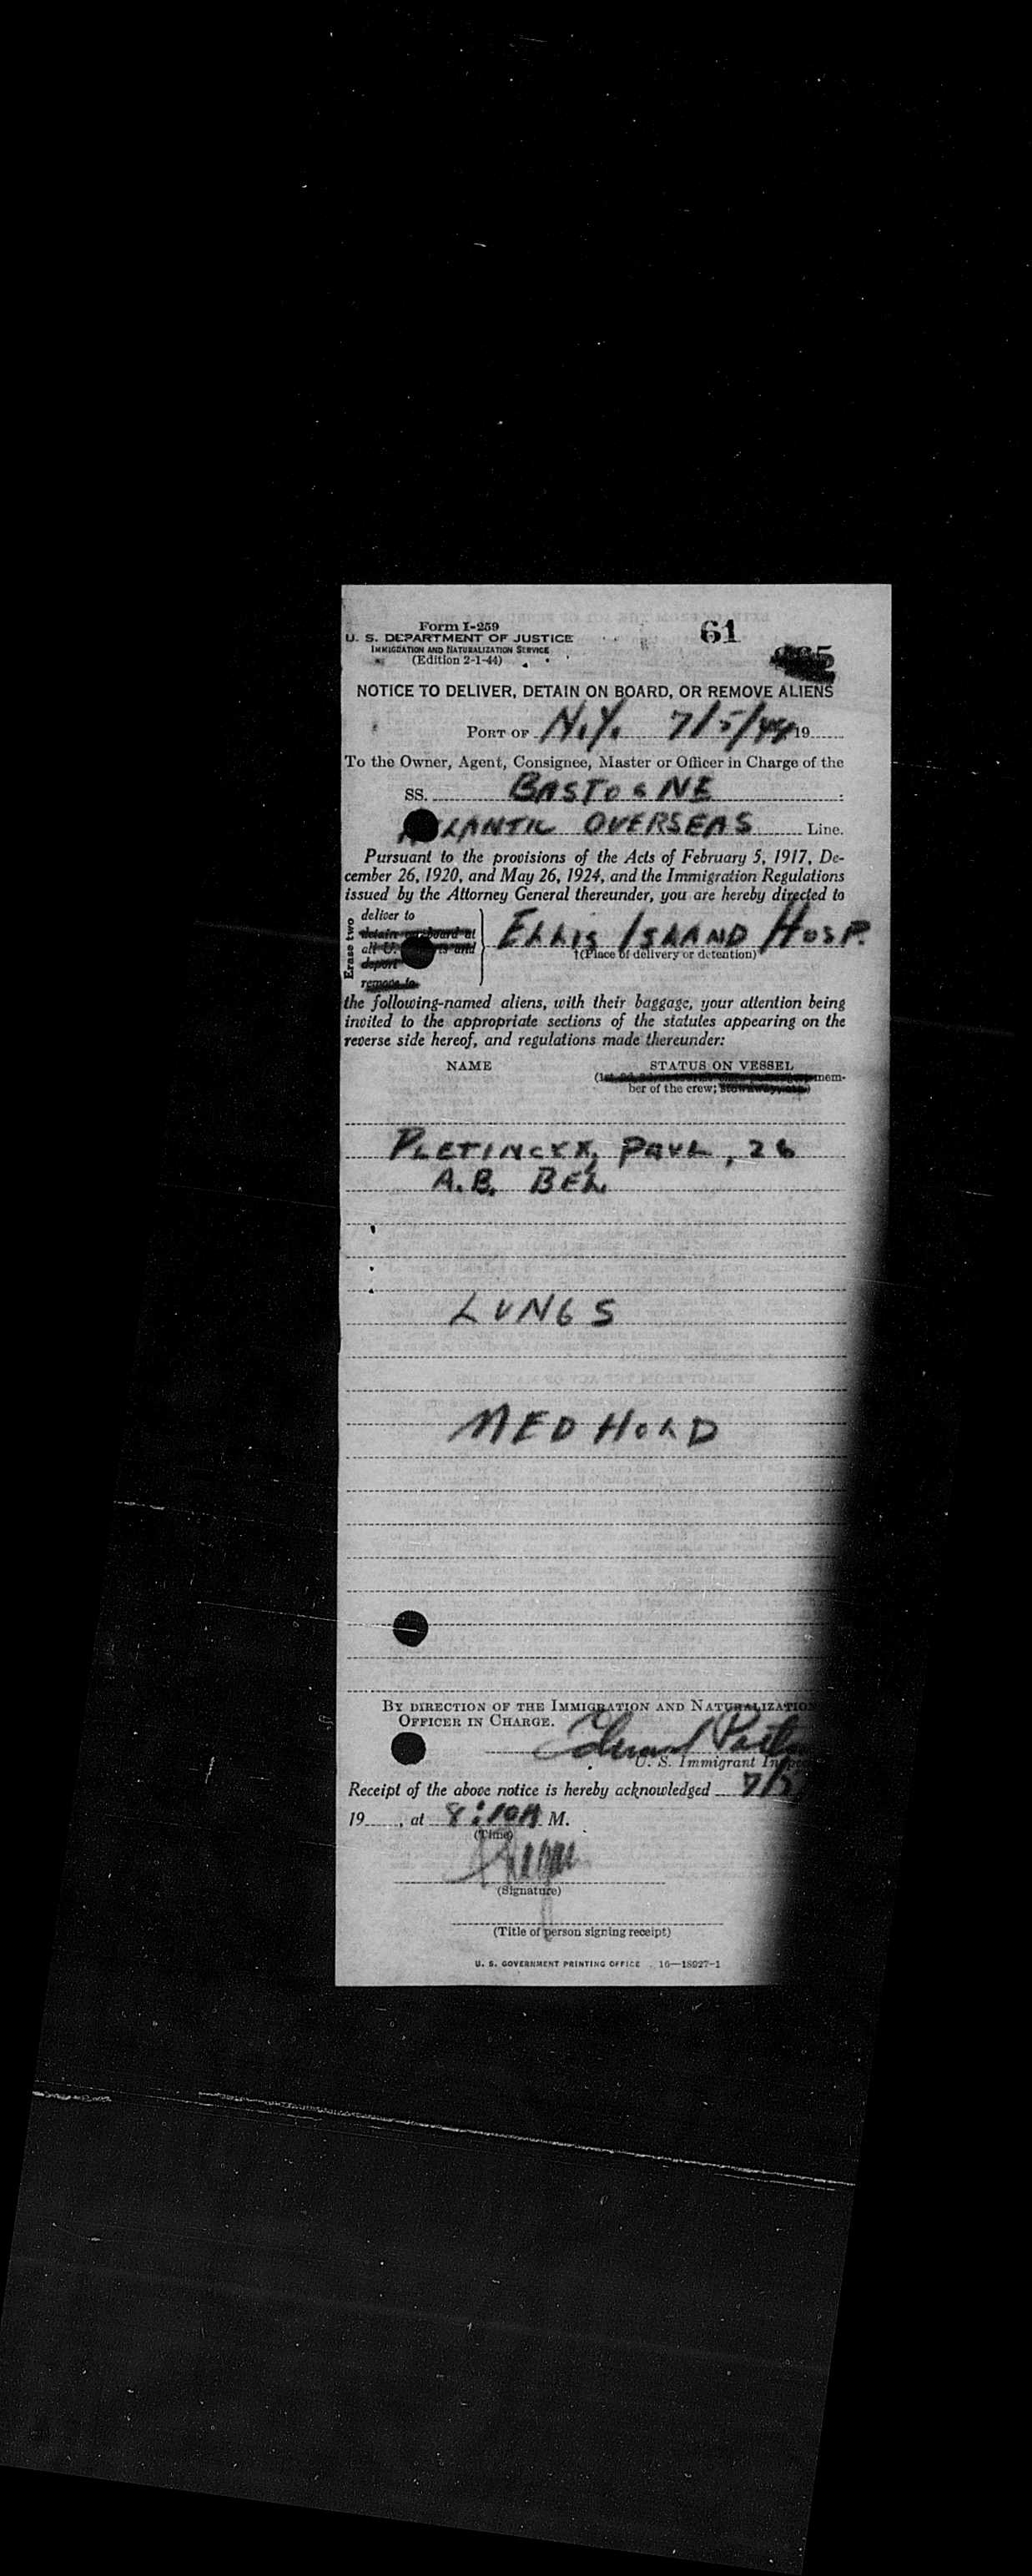 Form I-259
U. S. DEPARTMENT OF JUSTICE
IMMIGRATION AND NATURALIZATION SERVICE
(Edition 2-1-44)
61
NOTICE TO DELIVER, DETAIN ON BOARD, OR REMOVE ALIENS
PORT OF N.Y. 7/5/ 19
To the Owner, Agent, Consignee, Master or Officer in Charge of the
SS. BASTOGNE
ATLANTIC OVERSEAS Line.
Pursuant to the provisions of the Acts of February 5, 1917, De-
cember 26, 1920, and May 26, 1924, and the Immigration Regulations
issued by the Attorney General thereunder, you are hereby directed to
Erase two
deliver to
detain on board at
all U. and
deport
remove to
ELLIS ISLAND HOSP.
†(Place of delivery or detention)
the following-named aliens, with their baggage, your attention being
invited to the appropriate sections of the statutes appearing on the
reverse side hereof, and regulations made thereunder:
NAME STATUS ON VESSEL
mem-
ber of the crew;
PLETINCKX, PAUL, 26
A.B. BEL.
LUNGS
MED HOLD
BY DIRECTION OF THE IMMIGRATION AND NATURALIZATION
OFFICER IN CHARGE.
U. S. Immigrant
Receipt of the above notice is hereby acknowledged
19 , at 8:10A M.
(Time)
(Signature)
(Title of person signing receipt)
U. S. GOVERNMENT PRINTING OFFICE 16—18027-1